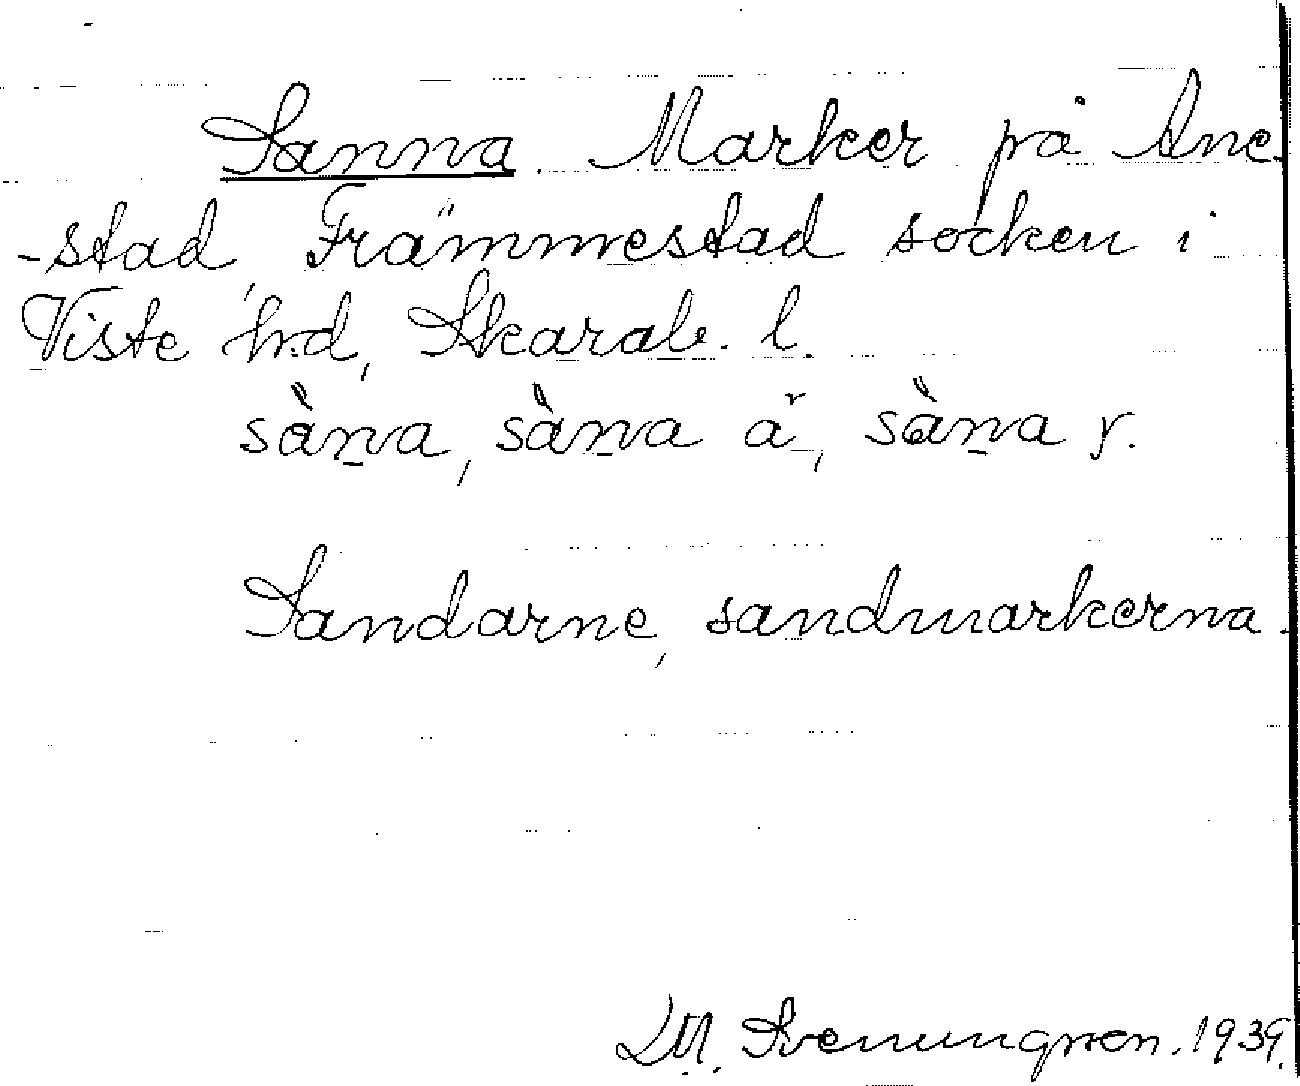 Sanna. Marker på Ane
-stad, Främmestad socken i
Viste hd, Skarab. l.
sàn̠a, sàn̠a ǎ, sàn̠a y.
Sandarne, sandmarkerna.
LM. Svenungsson. 1939.